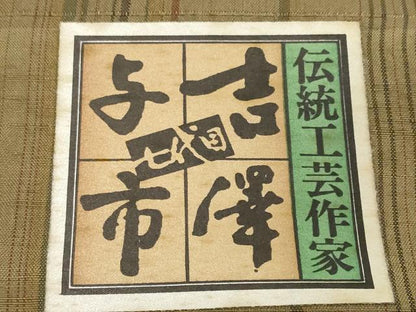 伝統工芸作家
吉澤
与市